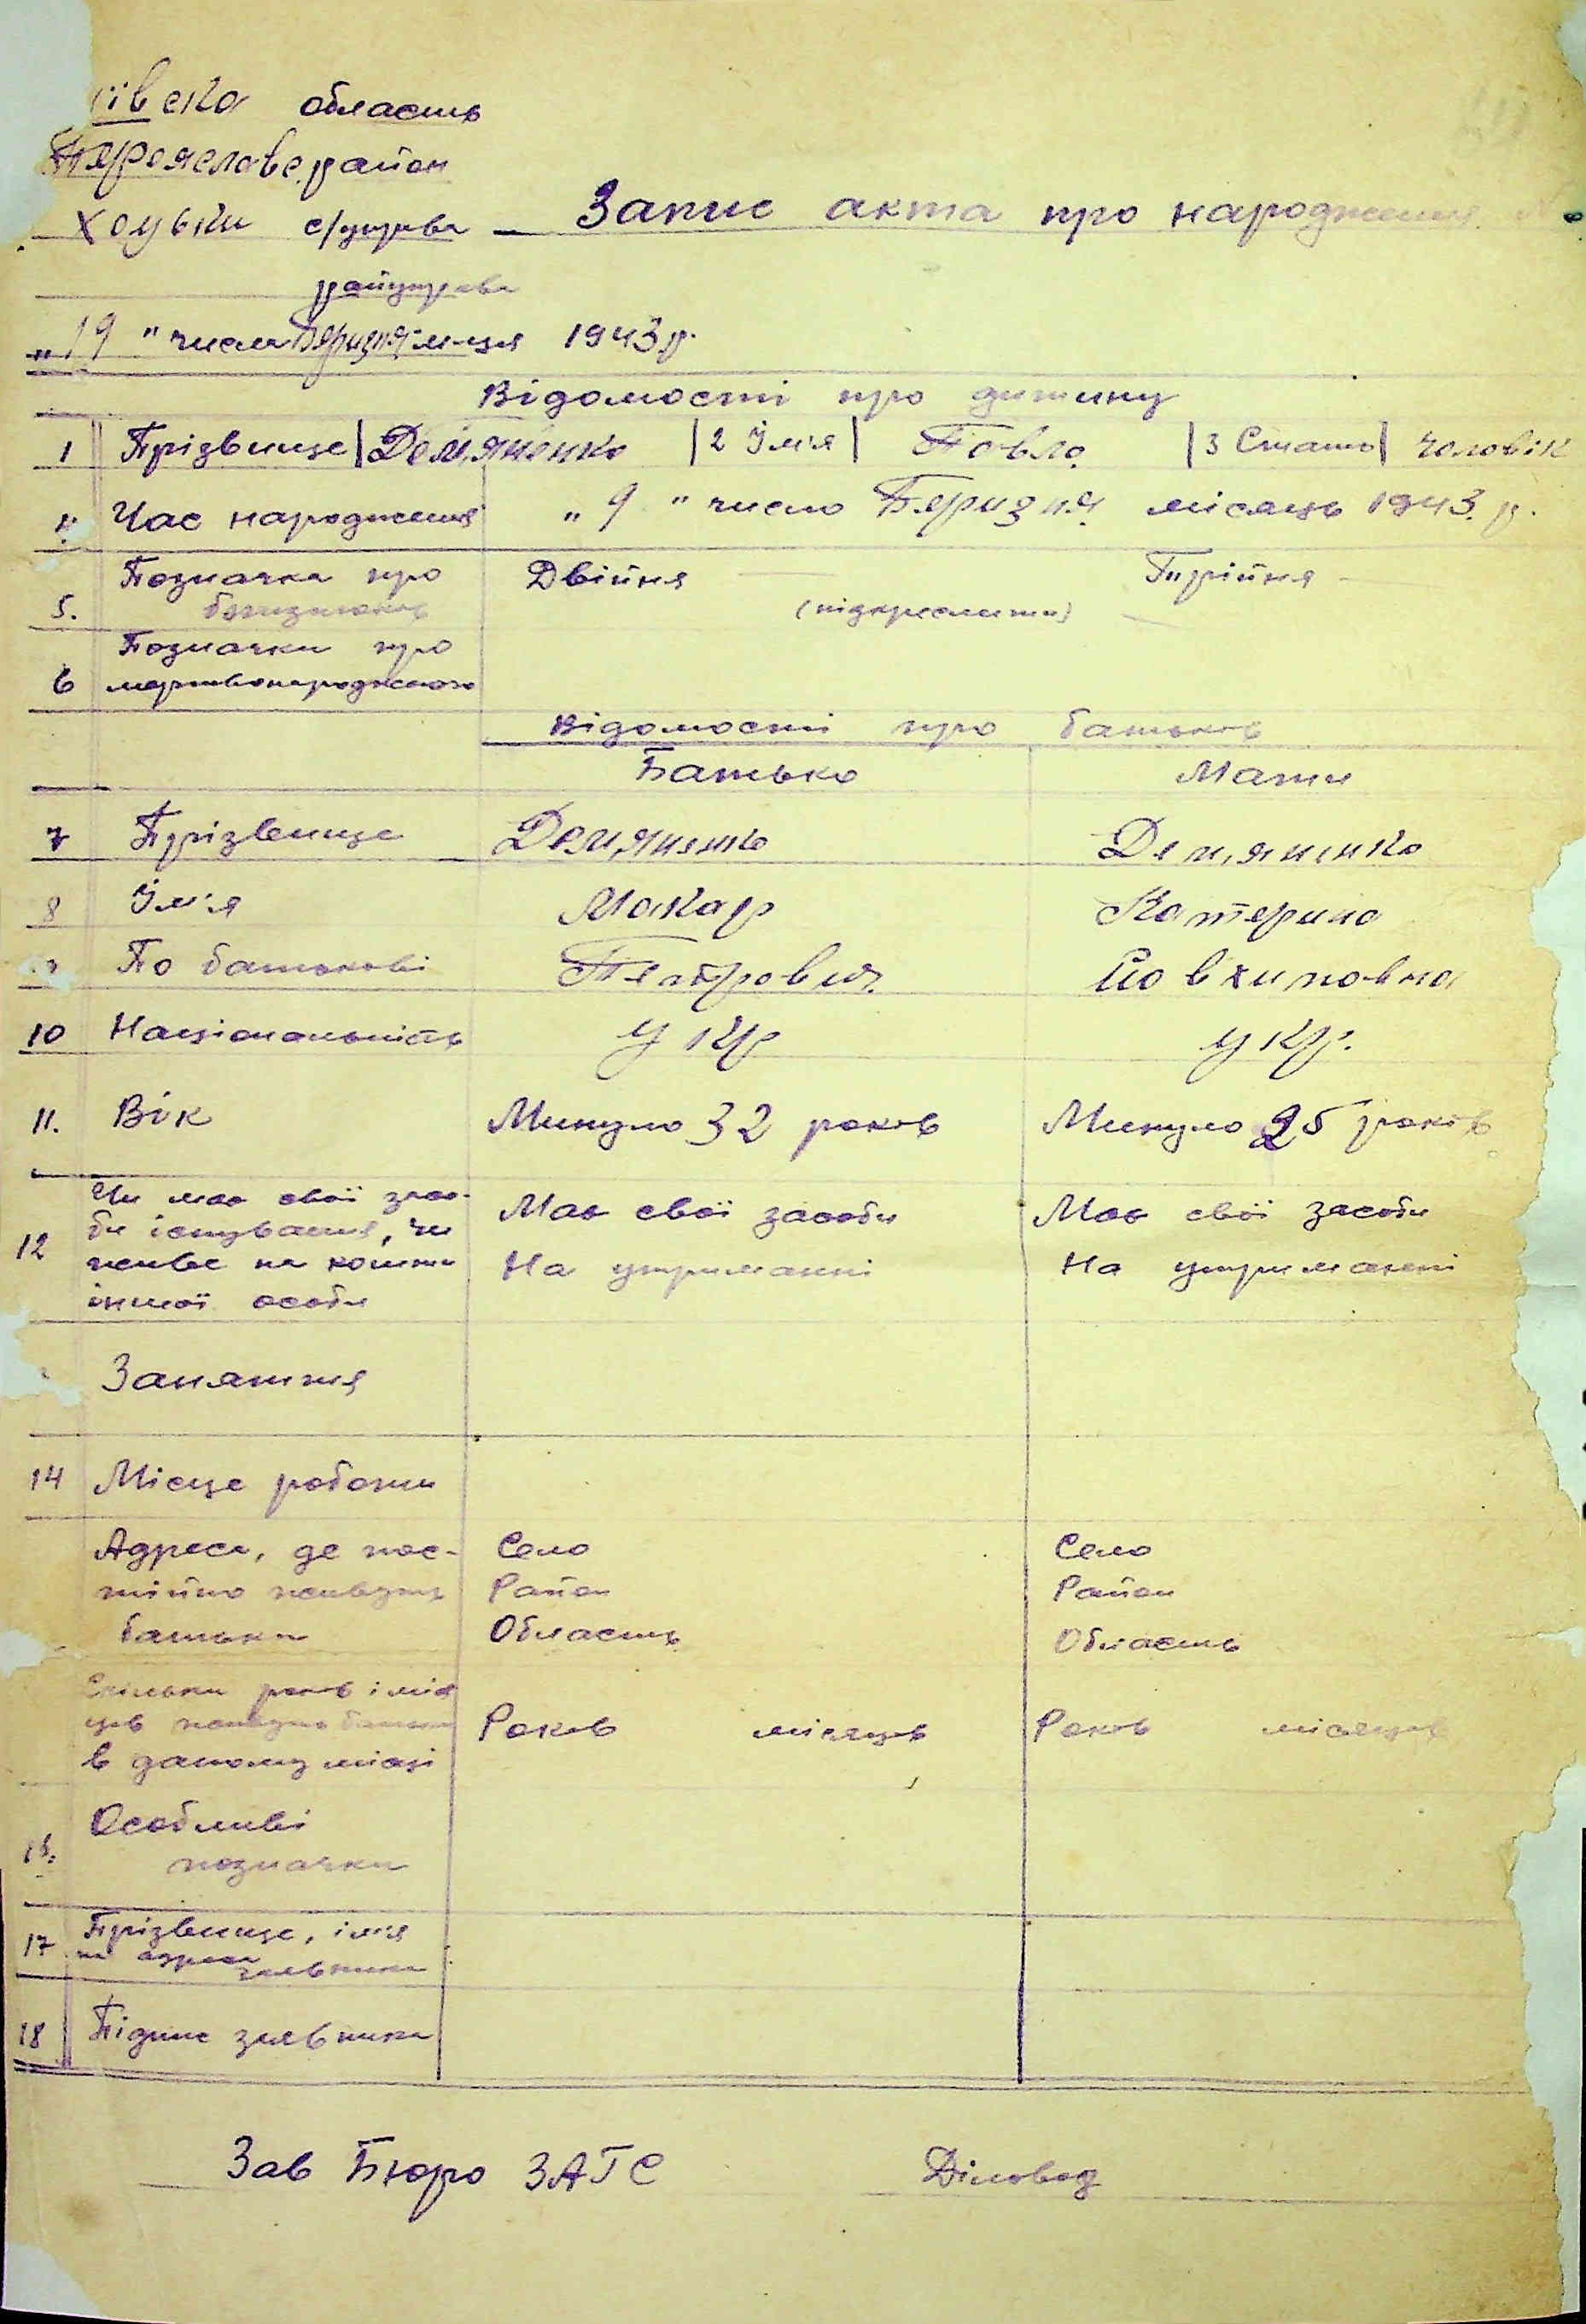 ївска область
Переяславс. район
Хоцьки с/управа Запис акта про народження
райуправа
„19" числа Беризня м-ця 1943 р.
Відомості про дитину
1 Прізвище Дем,яненко 2 Ім'я Повло 3 Стать чоловік
4 Час народження „9" число Беризня місяць 1943 р.
Позначка про Двійня Трійня
5. близнюків (підкреслити)
Позначки про
6 мертвонародженого
Відомості про батьків
Батько Мати
7 Прізвище Дем,яненко Дем,яненко
8 Ім'я Макар Катерина
По батькові Петрович Йовхимовна
10 Національність Укр Укр.
11. Вік Минуло 32 років Минуло 25 років
Чи має свої засо-
би існування, чи Має свої засоби Має свої засоби
12 живе на кошти На утриманні На утриманні
іншої особи
Заняття
14 Місце роботи
Адреса, де пос- Село Село
тійно живуть Район Район
батьки Область Область
Скільки років і міся
ців живуть батьки Років місяців Років місяців
в даному місці
Особливі
16. позначки
Прізвище, ім'я
17 та адреса
заявника
18 Підпис заявника
Зав Бюро ЗАГС Діловод